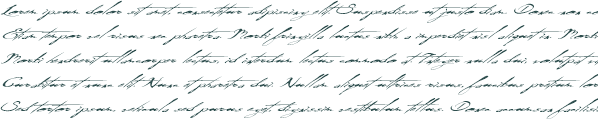 Lorem ipsum dolor sit amet, consectetur adipiscing elit. Suspendisse et justo diam. Donec non
Etiam tempor vel risus eu pharetra. Morbi fringilla luctus nibh, a imperdiet nisl aliquet in. Morbi
Morbi hendrerit ullamcorper lectus, id interdum lectus commodo at. Integer nulla dui, volutpat
Curabitur et sem elit. Nam et pharetra dui. Nullam aliquet ultricies risus, faucibus pretium lorem
Sed tortor ipsum, vehicula sed purus eget, dignissim vestibulum tellus. Donec accumsan facilisis